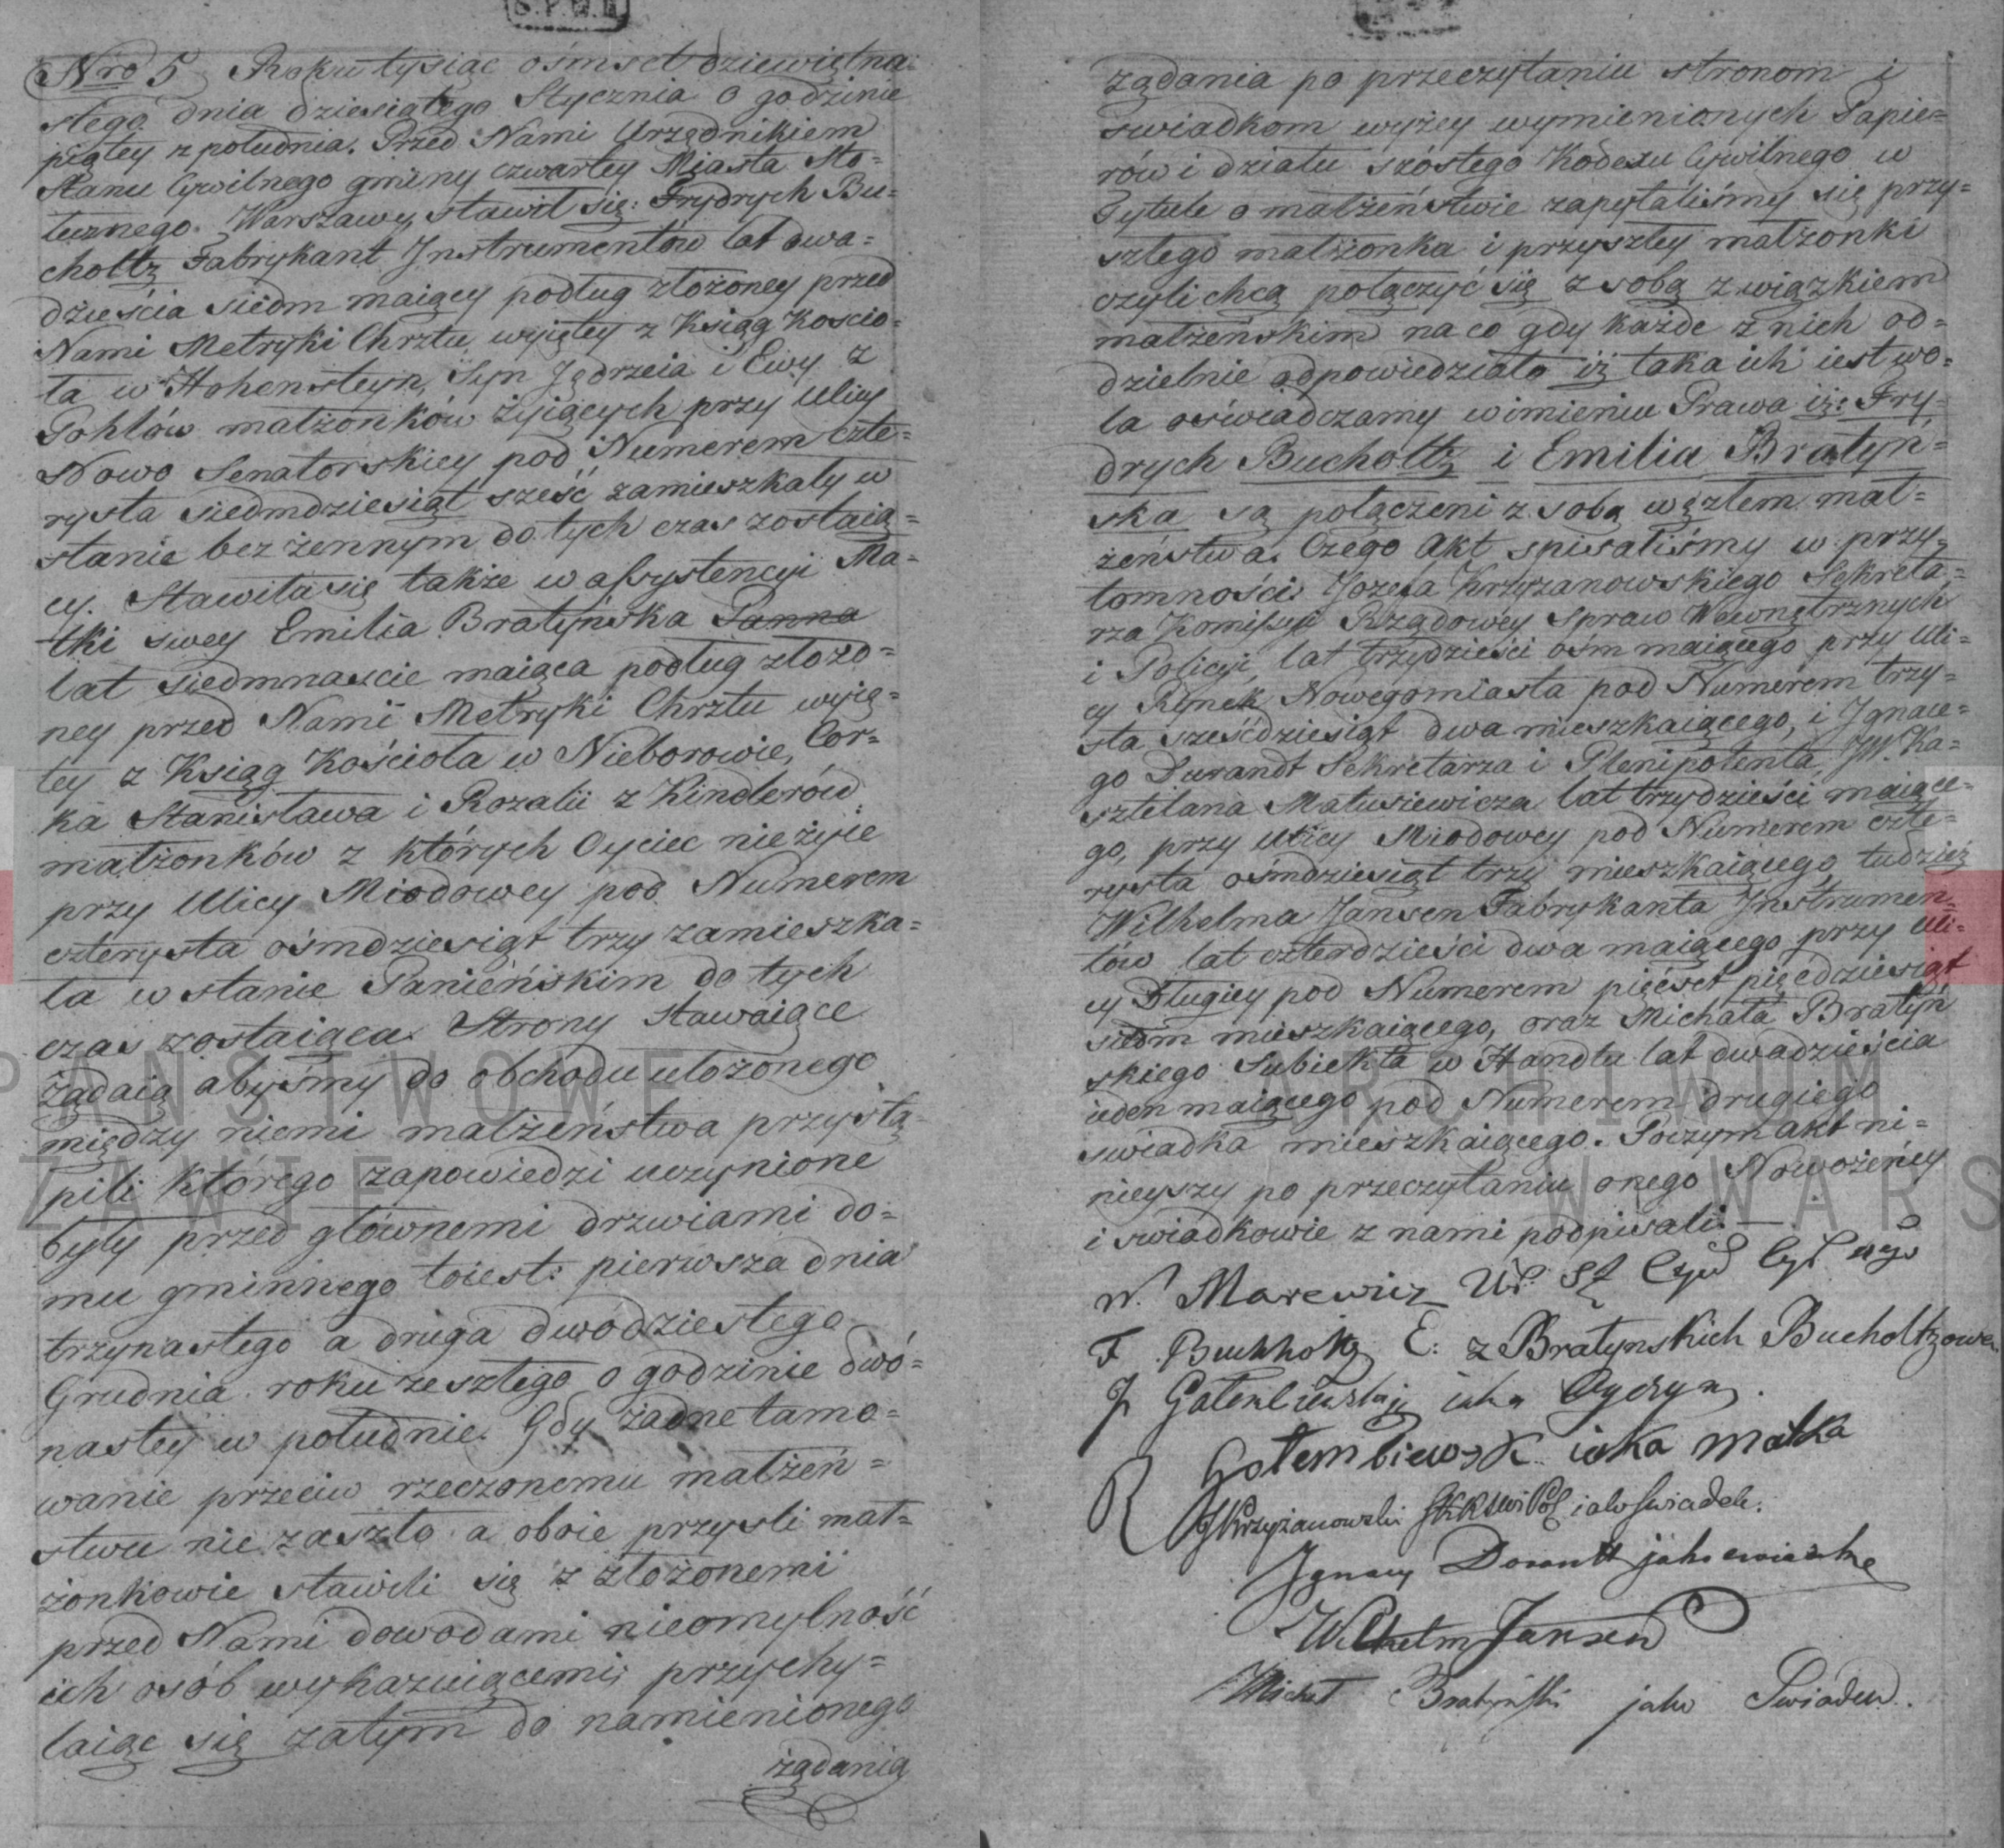 S.P.W.R
Nro 5 Roku tysiąc ośmset dziewiętna-
stego dnia dziesiątego Stycznia o godzinie
piątey z południa. Przed Nami Urzędnikiem
Stanu Cywilnego gminy czwartey Miasta Sto=
łecznego Warszawy, stawił się: Frydrych Bu=
choltz Fabrykant Jnstrumentów lat dwa=
dzieścia siedm maiący podług złożoney przed
Nami Metryki Chrztu wyiętey z Ksiąg Kościo=
ła w Hohensteyn, Syn Jędrzeia i Ewy z
Pohlów małżonków żyiących przy Ulicy
Nowo Senatorskiey pod Numerem czte=
rysta siedmdziesiąt sześć zamieszkały w
stanie bezżennym do tych czas zostaią=
cy. Stawiła się także w assystencyi Ma=
tki swey Emilia Bratyńska Panna
lat siedmnaście maiąca podług złożo=
ney przed Nami Metryki Chrztu wyię=
tey z Ksiąg Kościoła w Nieborowie, Cor=
ka Stanisława i Rozalii z Kinderów
małżonków z których Oyciec nie żyie
przy Ulicy Miodowey pod Numerem
czterysta ośmdziesiąt trzy zamieszka=
ła w stanie Panieńskim do tych
czas zostaiąca. Strony stawaiące
żądaią abyśmy do obchodu ułożonego
między niemi małżeństwa przystą-
pili którego zapowiedzi uczynione
były przed głównemi drzwiami do=
mu gminnego toiest: pierwsza dnia
trzynastego a druga dwódziestego
Grudnia roku zeszłego o godzinie dwó=
nastey w południe. Gdy żadne tamo=
wanie przeciw rzeczonemu małżeń=
stwu nie zaszło a oboie przyśli mał=
żonkowie stawili się z złożonemi
przed Nami dowodami nieomylność
ich osób wykazuiącemi, przychy=
laiąc się zatym do namienionego
żądania
żądania po przeczytaniu stronom i
świadkom wyżey wymienionych Papie=
rów i działu szóstego Kodexu Cywilnego w
Tytule o małżeństwie zapytaliśmy się przy=
szłego małżonka i przyszłey małżonki
czyli chcą połączyć się z sobą związkiem
małżeńskim na co gdy każde z nich od=
dzielnie odpowiedziało iż taka ich iest wo=
la oświadczamy w imieniu Prawa iż: Fry=
drych Bucholtz i Emilia Bratyń=
ska są połączeni z sobą węzłem mał=
żeństwa. Czego Akt spisaliśmy w przy=
tomności Jozefa Krzyżanowskiego Sekreta=
rza Komissyi Rządowéy Spraw Wewnętrznych
i Policyi, lat trzydzieści ośm maiącego przy Uli=
cy Rynek Nowegomiasta pod Numerem trzy=
sta sześćdziesiąt dwa mieszkaiącego, i Jgnace=
go Durandt Sekretarza i Plenipotenta JW. Ka=
sztelana Matusiewicza lat trzydzieści maiące=
go, przy Ulicy Miodowey pod Numerem czte=
rysta ośmdziesiąt trzy mieszkaiącego, tudzież
Wilhelma Jansen Fabrykanta Jnstrumen=
tów lat czterdzieści dwa maiącego przy Uli=
cy Długiey pod Numerem pięćset pięćdziesiąt
siedm mieszkaiącego, oraz Michała Bratyń
skiego Subiekta w Handlu lat dwadzieścia
ieden maiącego pod Numerem drugiego
świadka mieszkaiącego. Poczym akt ni=
nieyszy po przeczytaniu onego Nowożeńcy
i świadkowie z nami podpisali. —
W. Marewicz
F Buchholtz E: z Bratynskich Bucholtzowa
iako Oyczym.
R Gołembiewsk iako matka
JKrzyżanowski iako Swiadek.
Jgnacy jako swiadek
Wilhelm Jansen
Michał Bratyński jako Swiadek.
PAŃSTWOWE
ZAWIE
ARCHIWUM
W WARS